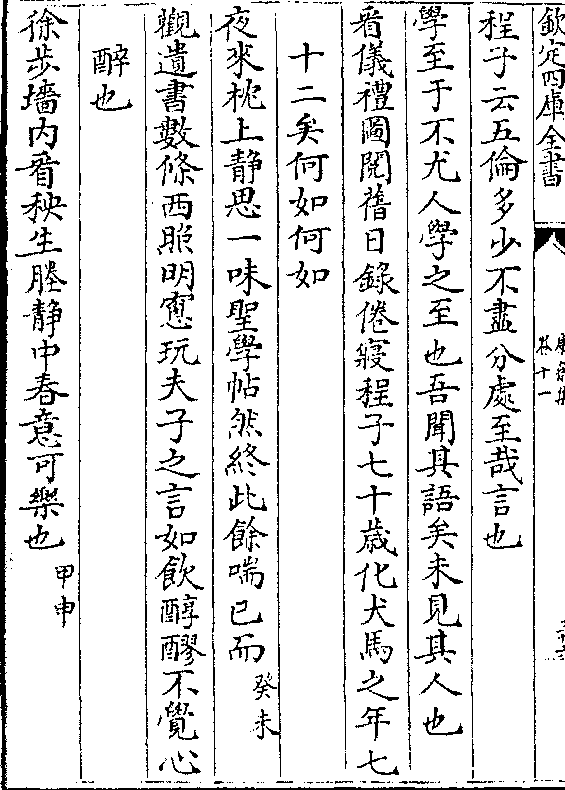 欽定四庫全書
康齋集
卷十一
程子云五倫多少不盡分處至哉言也
學至于不尤人學之至也吾聞其語矣未見其人也
看儀禮圖閱舊日錄倦寢程子七十歲化犬馬之年七
十二矣何如何如
夜來枕上靜思一味聖學帖然終此餘喘已而癸未
觀遺書數條西照明窓玩夫子之言如飲醇醪不覺心
醉也
徐步墻内看秧生塍靜中春意可樂也甲申